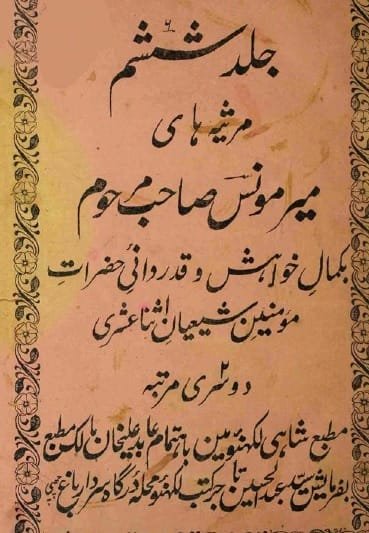 جلد ششم ۶
مرثیہ ہای
میر مونس صاحب مرحوم
بکمالِ خواہش و قدردانیٔ حضراتِ
مومنینِ شیعیانِ اثنا عشری
دوسری مرتبہ ۲
مطبع شاہی لکھنؤ مین باہتمام عابد علیخان مالک مطبع
بفرمایش سید عبد الحسین تاجر کتب لکھنؤ محلہ درگاہ سردار باغ چھپی